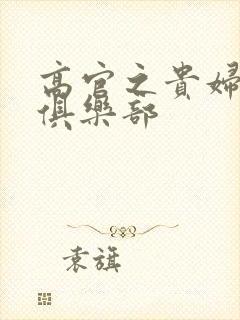 高官之貴婦
俱樂部
袁旗